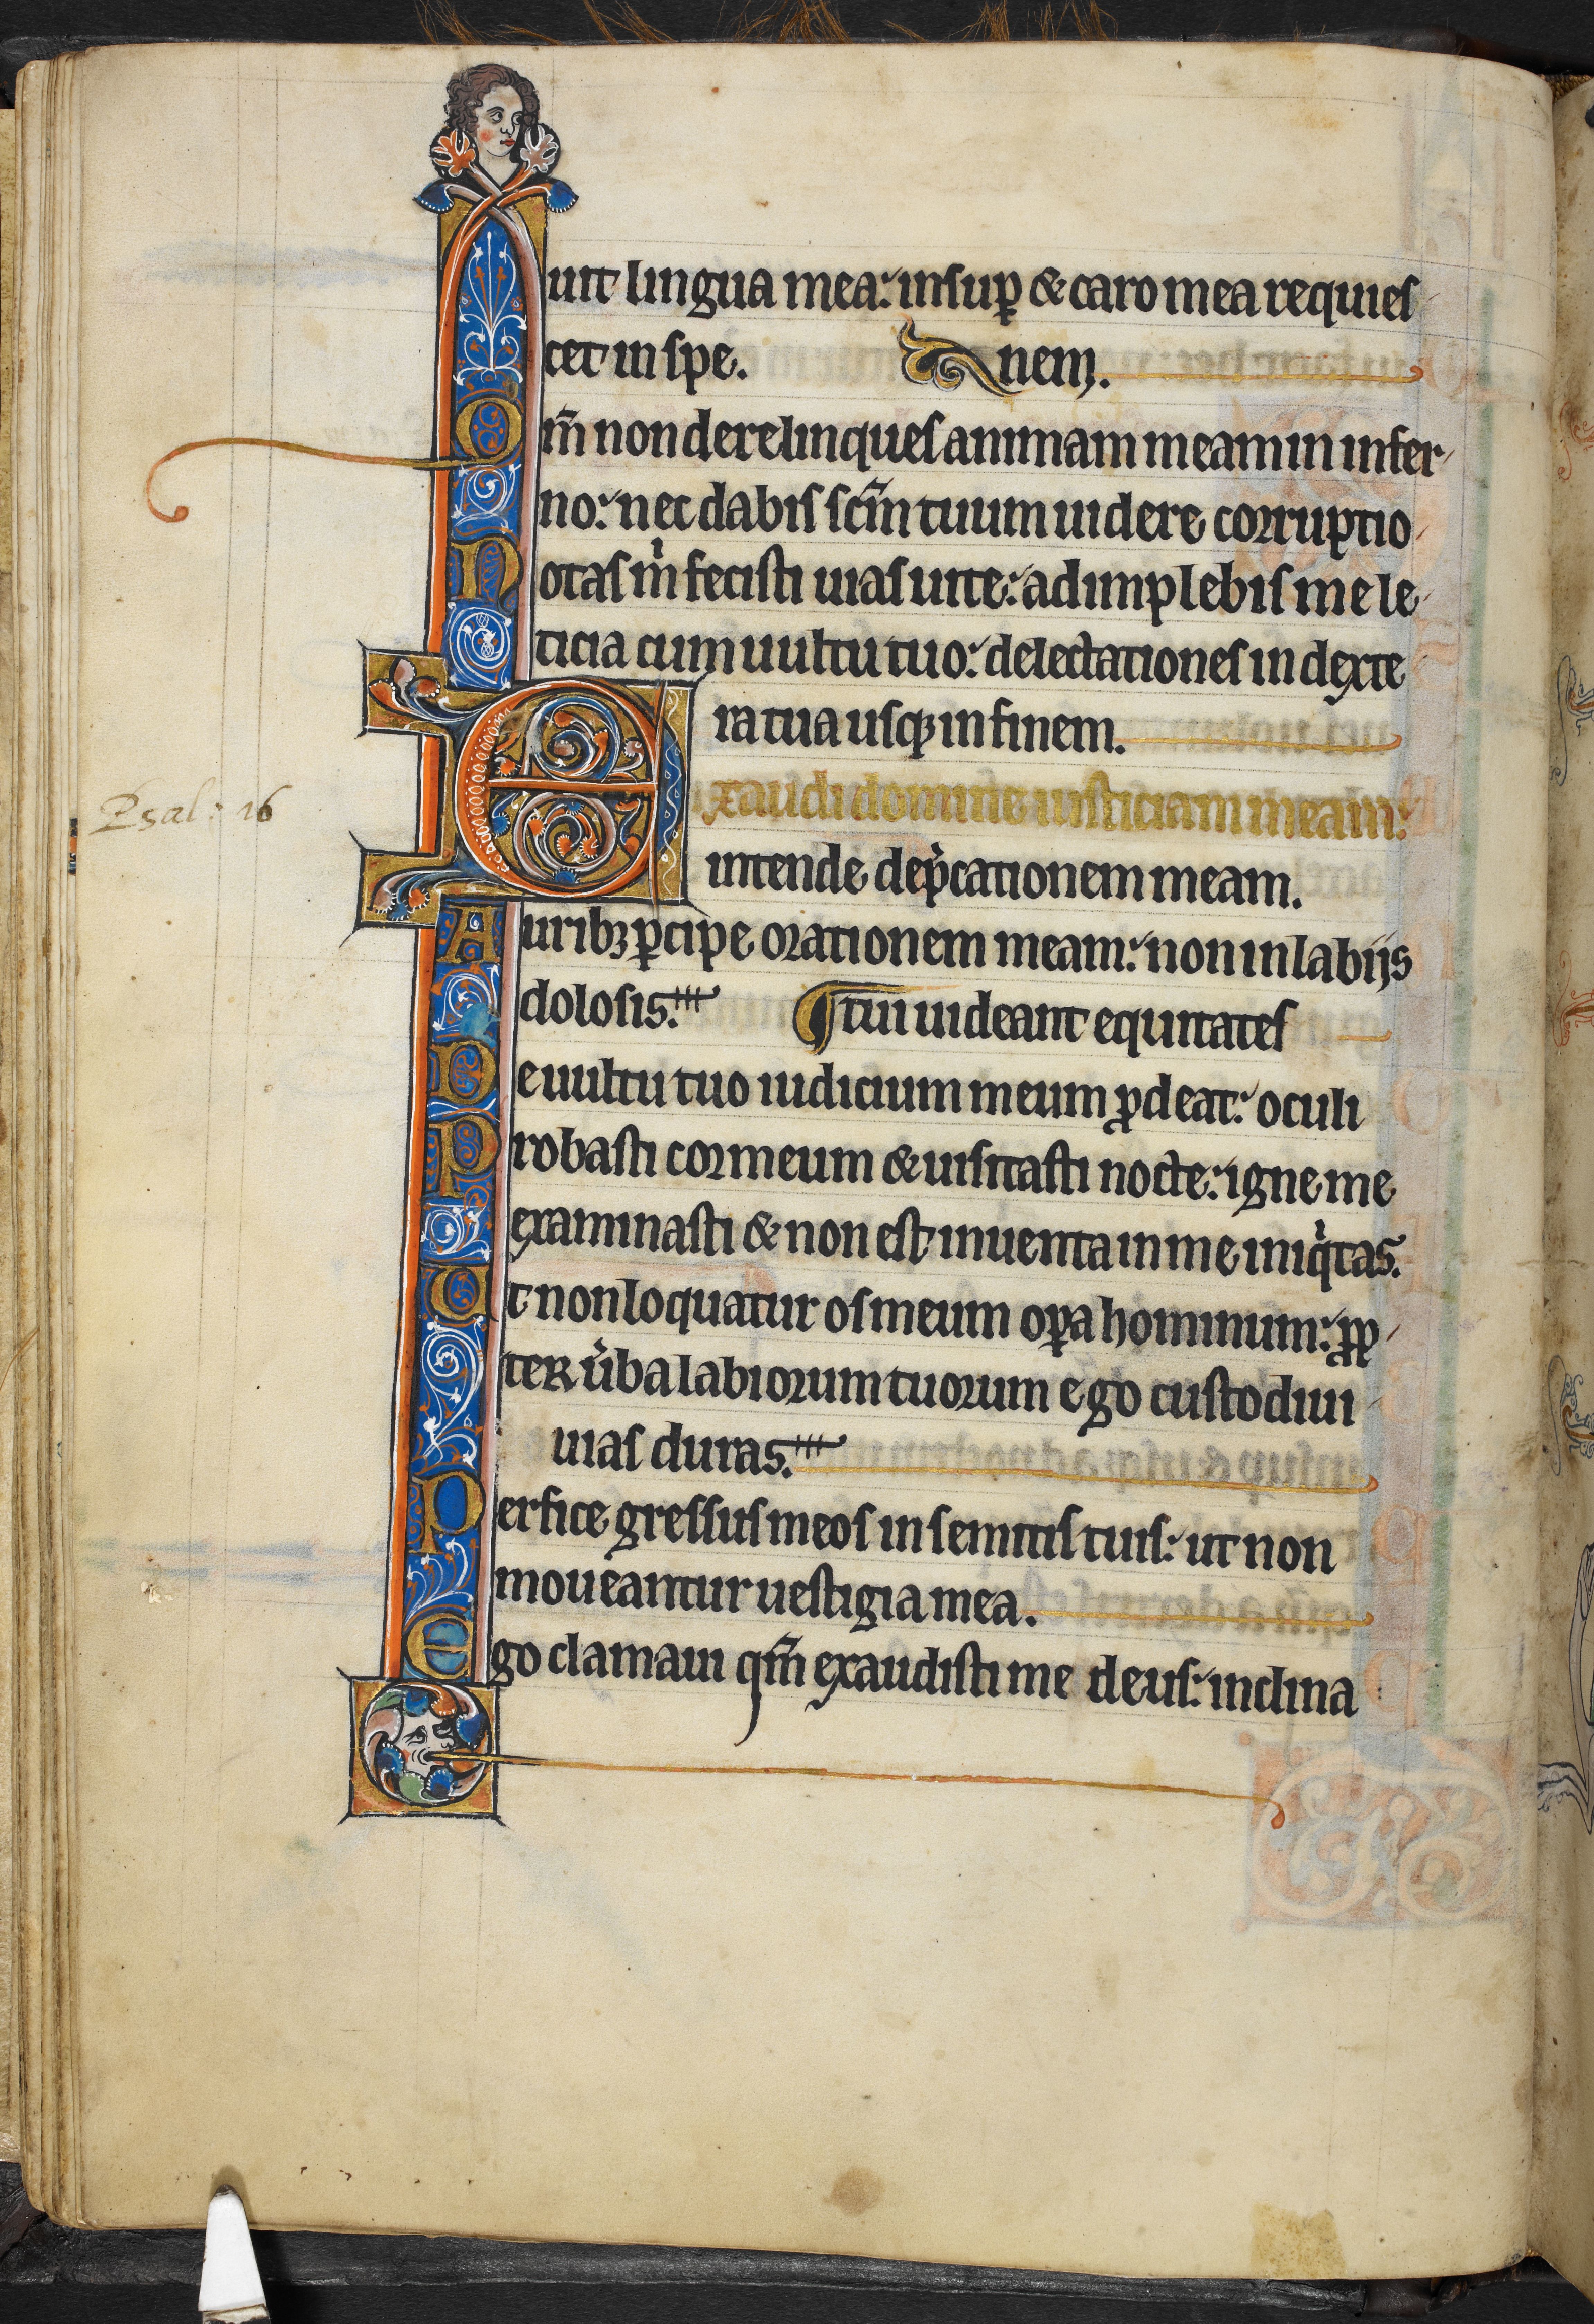 uit lingua mea: insup̲ & caro mea requies
cet in spe. nem.
Qm̄ non derelinques animam meam in infer
no: nec dabis scm̄ tuum uidere corruptio
Notas m̍ fecisti uias uite: adimplebis me le
ticia cum uultu tuo: delectationes in dexte
ra tua usqꝫ in finem.
Exaudi domine iusticiam meam:
Psal: 16
intende dep̍cationem meam.
Auribꝫ ꝑcipe orationem meam: non in labijs
dolosis. tui uideant equitates
De uultu tuo iudicium meum ꝓdeat: oculi
Probasti cor meum & uisitasti nocte: igne me
examinasti & non est inuenta in me iniq̍tas.
Ut non loquatur os meum oꝑa hominum: ꝓp
ter u̍ba labiorum tuorum ego custodiui
uias duras.
Perfice gressus meos in semitis tuis: ut non
moueantur uestigia mea.
Ego clamaui qm̄ exaudisti me deus: inclina